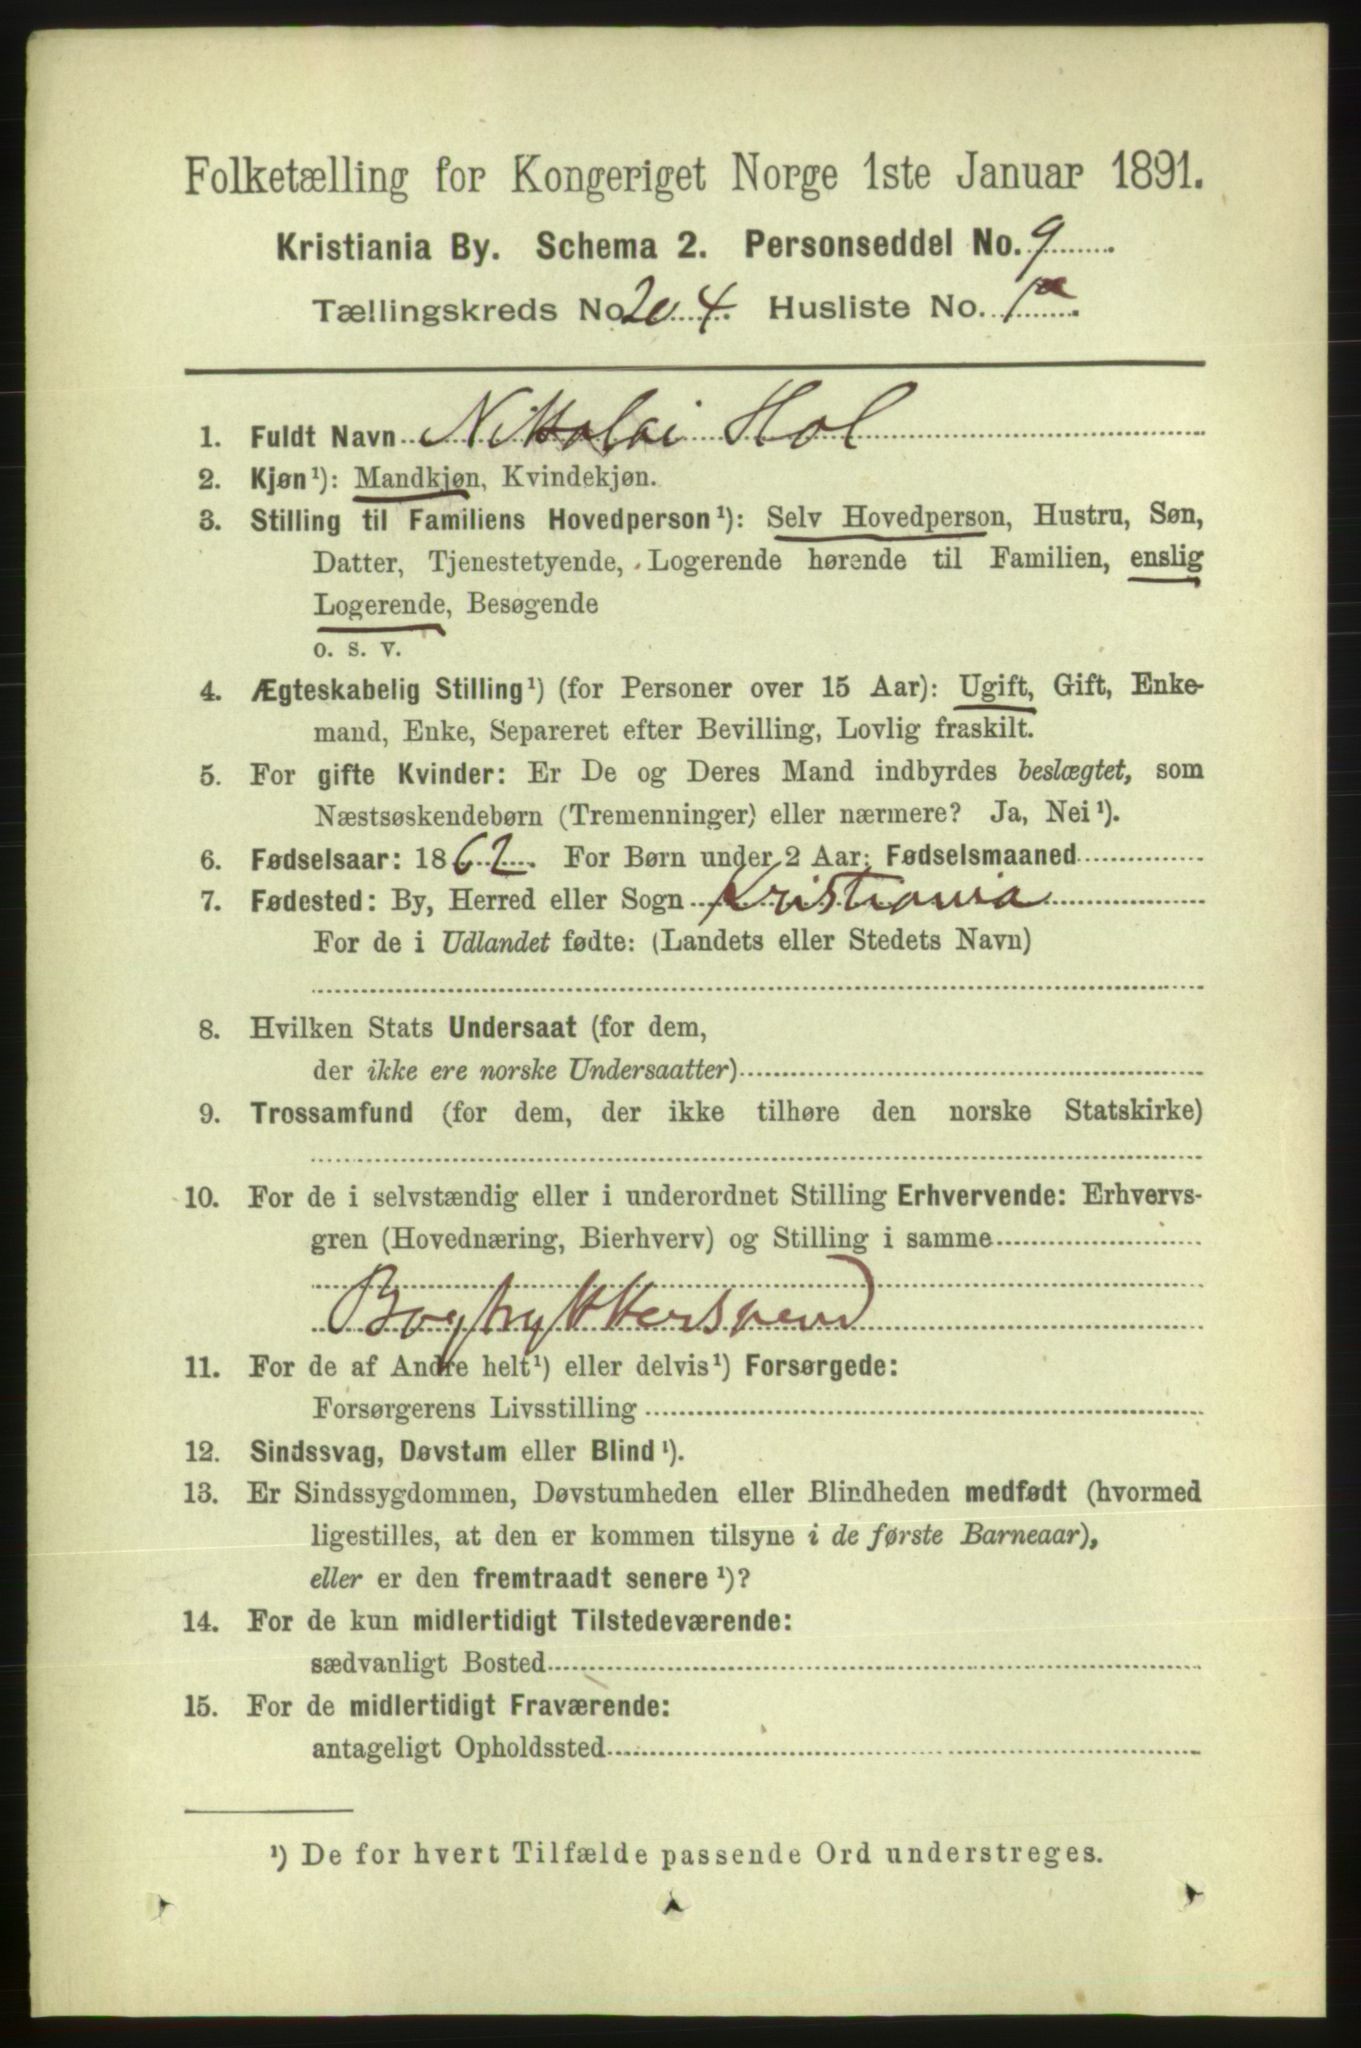 Folketælling for Kongeriget Norge 1ste Januar 1891.
Kristiania By. Schema 2. Personseddel No. 9
Tællingskreds No 204. Husliste No. 1a.
1. Fuldt Navn Nikolai Hol
2. Kjøn¹): Mandkjøn, Kvindekjøn.
3. Stilling til Familiens Hovedperson¹): Selv Hovedperson, Hustru, Søn,
Datter, Tjenestetyende, Logerende hørende til Familien, enslig
Logerende, Besøgende
o. s. v.
4. Ægteskabelig Stilling¹) (for Personer over 15 Aar): Ugift, Gift, Enke-
mand, Enke, Separeret efter Bevilling, Lovlig fraskilt.
5. For gifte Kvinder: Er De og Deres Mand indbyrdes beslægtet, som
Næstsøskendebørn (Tremenninger) eller nærmere? Ja, Nei¹).
6. Fødselsaar: 1862. For Børn under 2 Aar: Fødselsmaaned
7. Fødested: By, Herred eller Sogn Kristiania
For de i Udlandet fødte: (Landets eller Stedets Navn)
8. Hvilken Stats Undersaat (for dem,
der ikke ere norske Undersaatter)
9. Trossamfund (for dem, der ikke tilhøre den norske Statskirke)
10. For de i selvstændig eller i underordnet Stilling Erhvervende: Erhvervs-
gren (Hovednæring, Bierhverv) og Stilling i samme
Bogtrykkersvend
11. For de af Andre helt¹) eller delvis¹) Forsørgede:
Forsørgerens Livsstilling
12. Sindssvag, Døvstum eller Blind¹).
13. Er Sindssygdommen, Døvstumheden eller Blindheden medfødt (hvormed
ligestilles, at den er kommen tilsyne i de første Barneaar),
eller er den fremtraadt senere¹)?
14. For de kun midlertidigt Tilstedeværende:
sædvanligt Bosted
15. For de midlertidigt Fraværende:
antageligt Opholdssted
¹) De for hvert Tilfælde passende Ord understreges.